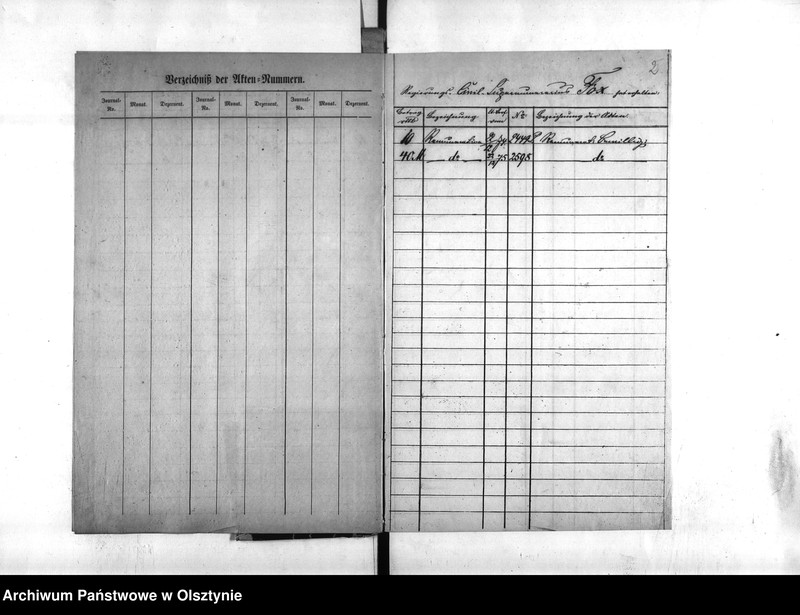 Verzeichniß der Akten-Nummern.
Journal-No. Monat. Dezernent. Journal-No. Monat. Dezernent. Journal-No. Monat. Dezernent.
2
Regierungs-Civil-Supernumerarius Fox hat erhalten
Betrag Bezeichnung No Bezeichnung der Akten
10 Remuneration
40 M — do — 75 2595 — do —
Archiwum Państwowe w Olsztynie